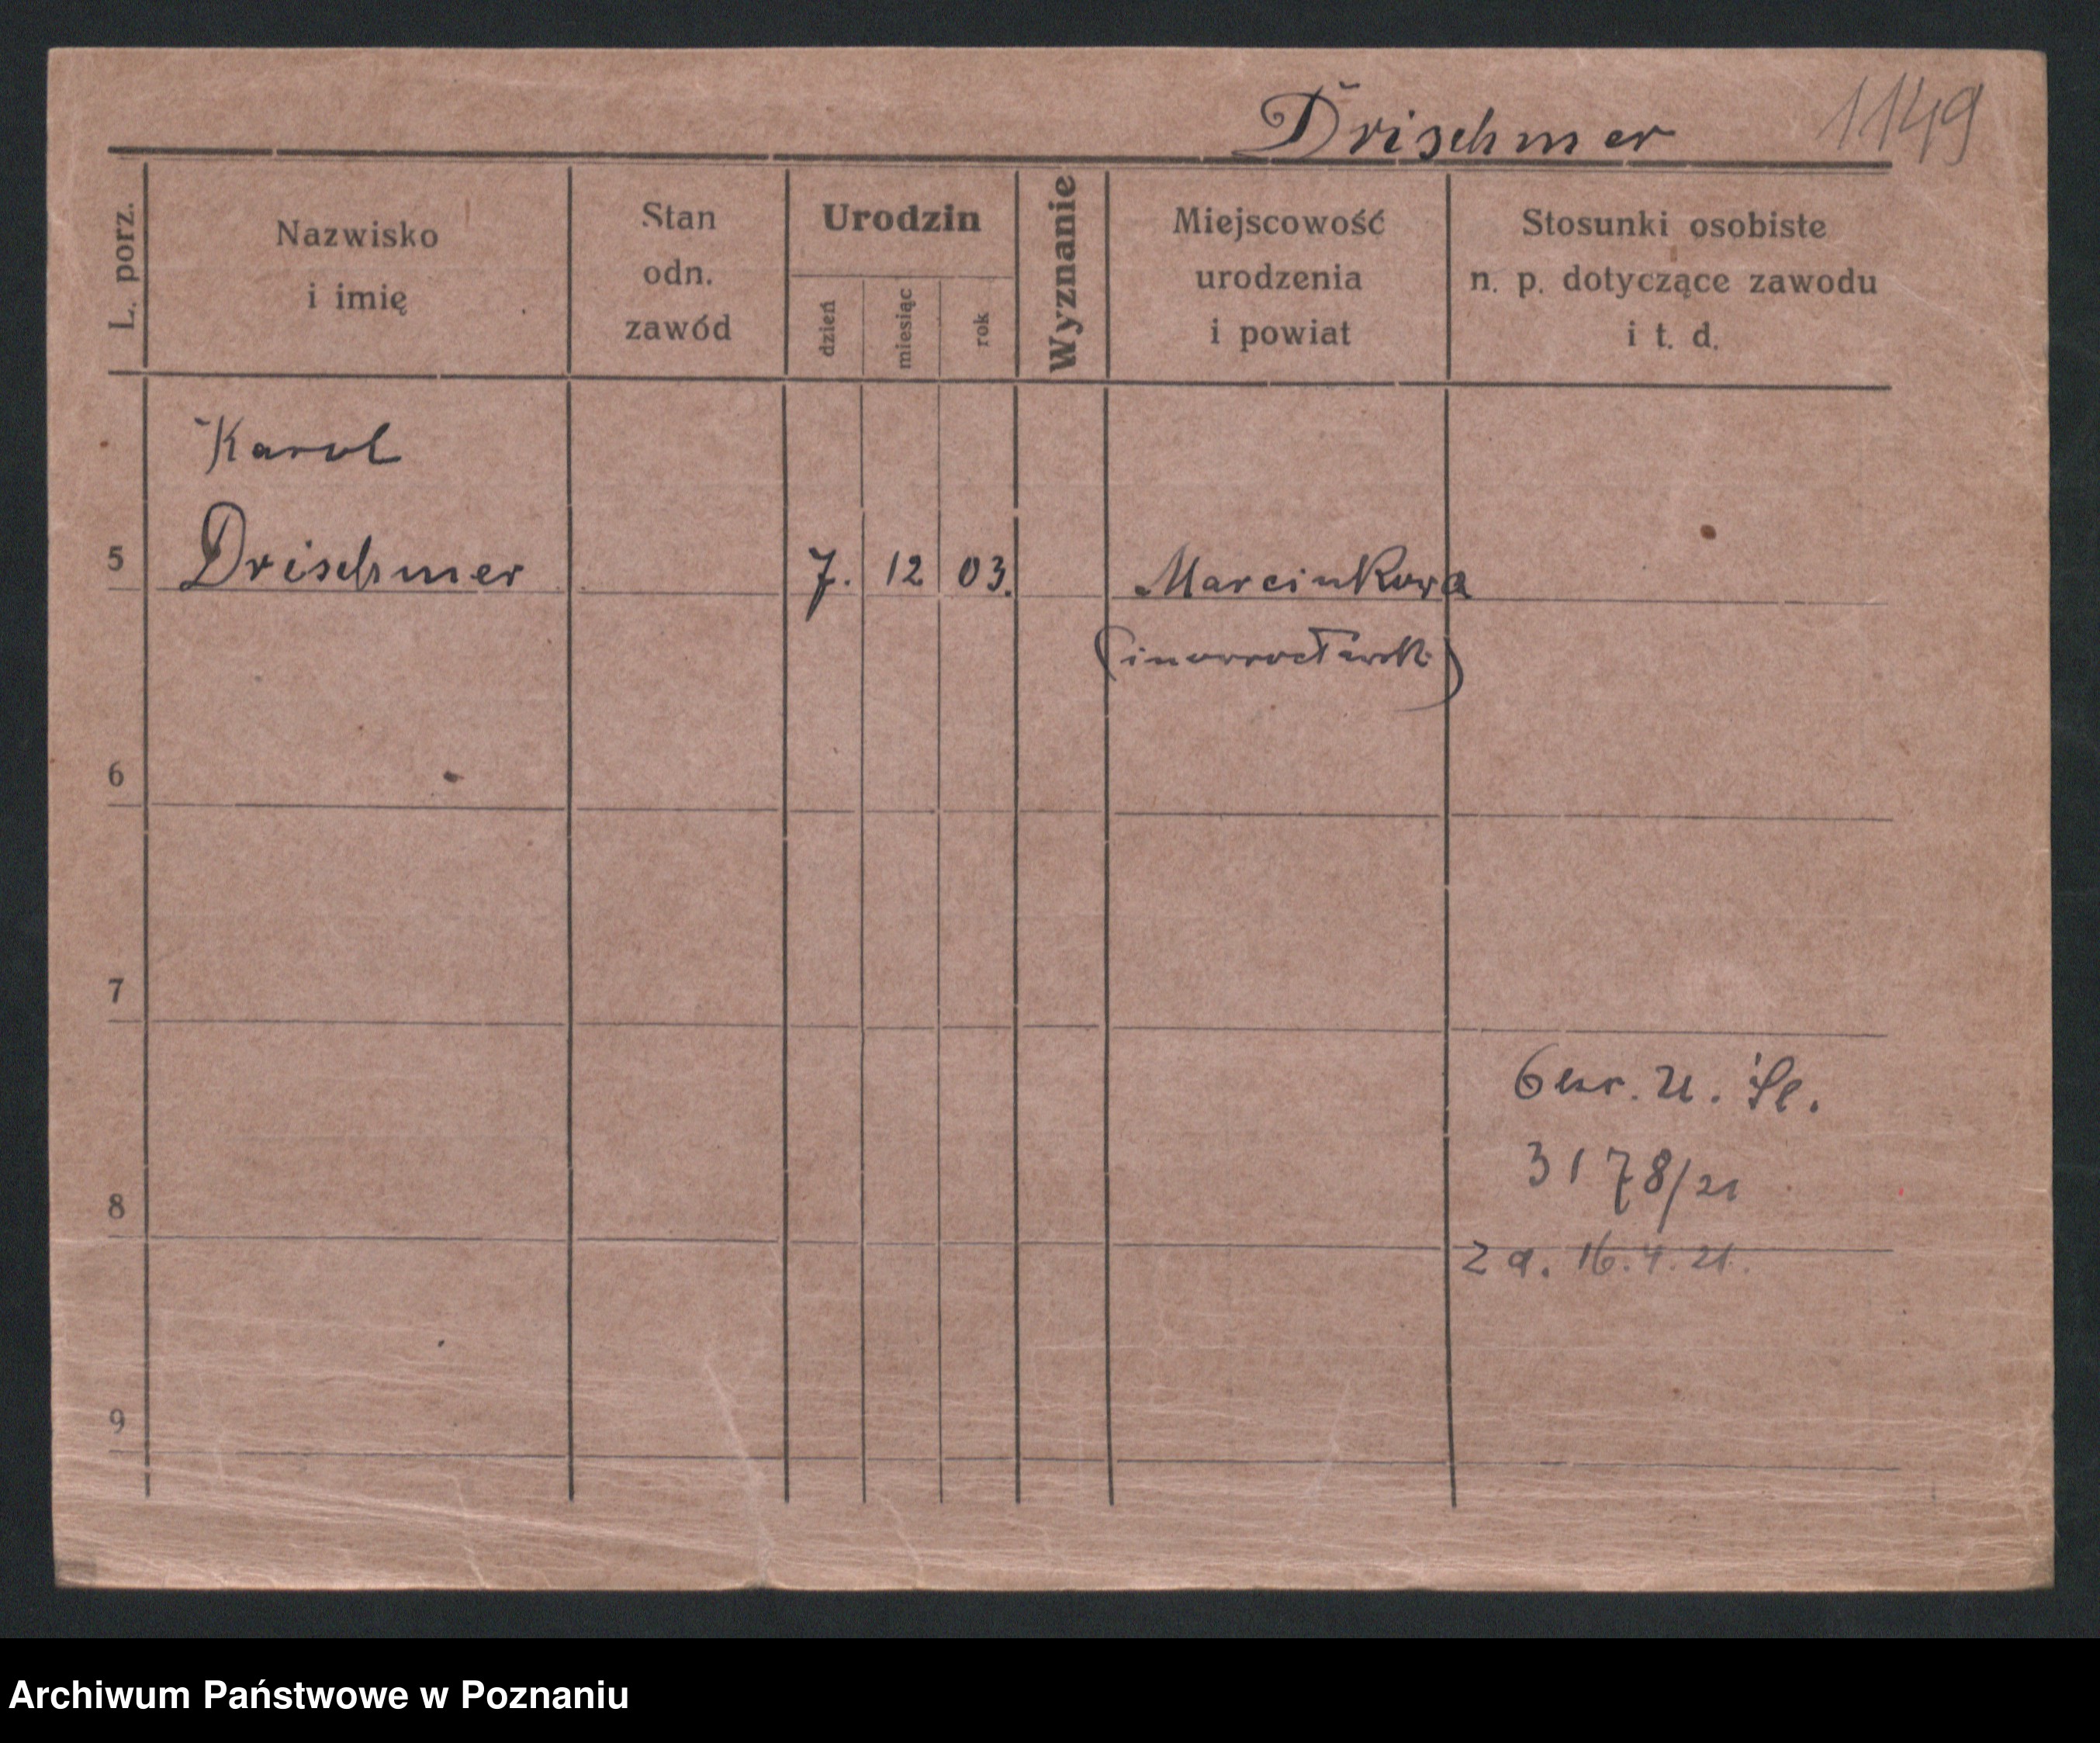 Drischmer 1149
L. porz.
Nazwisko
i imię
Stan
odn.
zawód
Urodzin
dzień
miesiąc
rok
Wyznanie
Miejscowość
urodzenia
i powiat
Stosunki osobiste
n. p. dotyczące zawodu
i t. d.
Karol
5 Drischmer 7. 12 03. Marcinkowa
(inowrocławsk.)
6
7
3178/21
8
16.4.21.
9
Archiwum Państwowe w Poznaniu